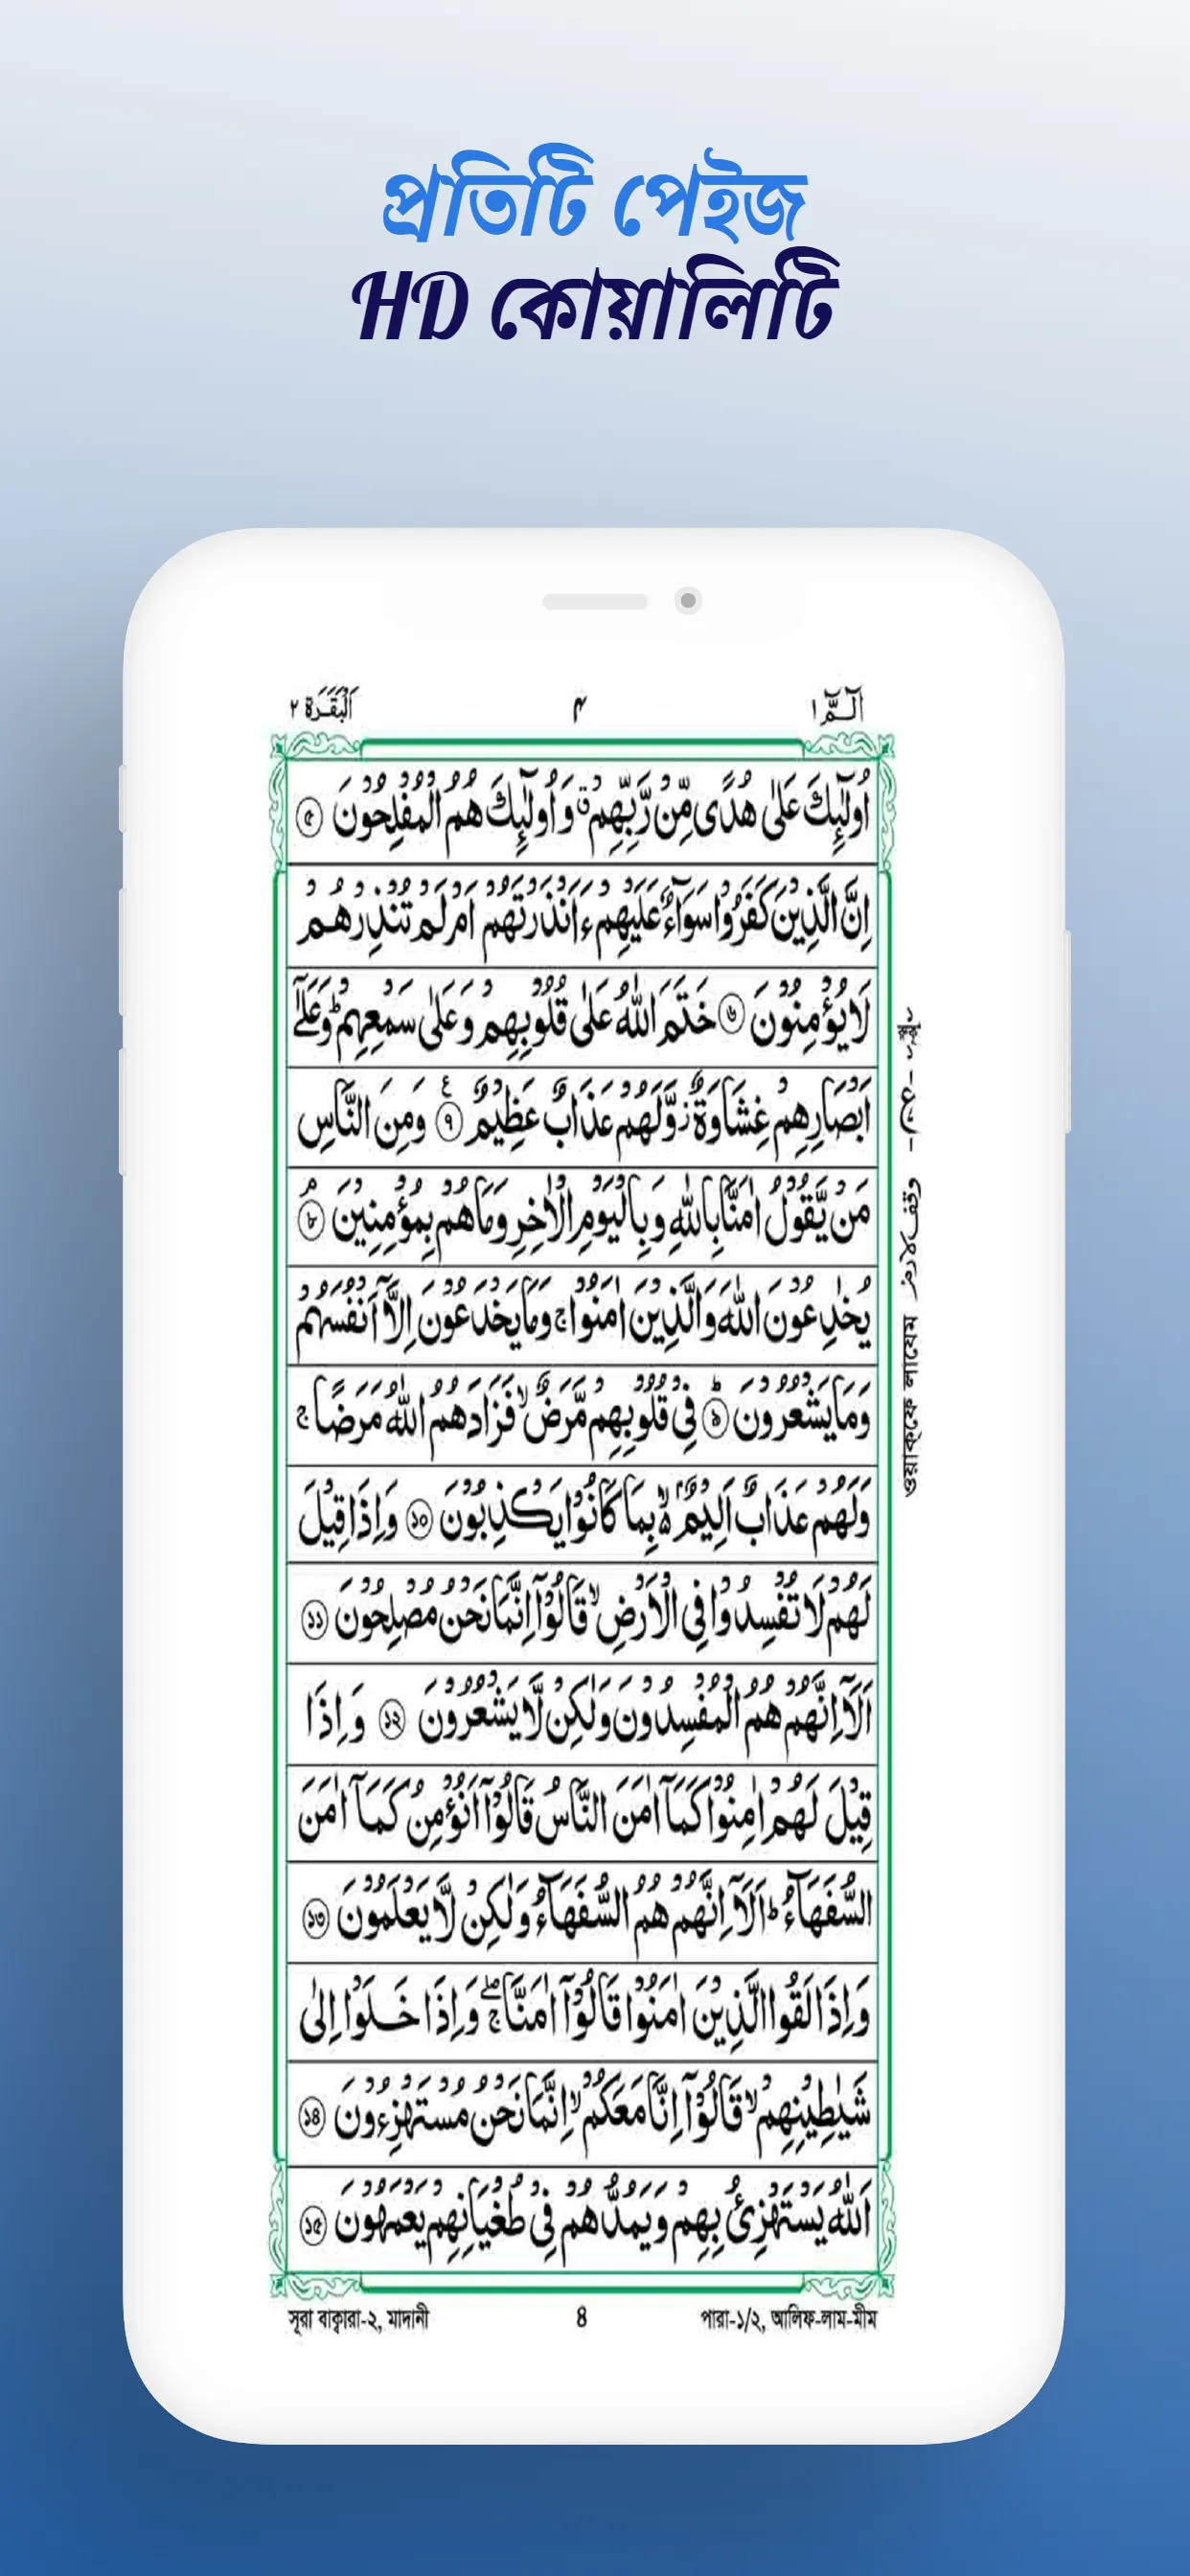 প্রতিটি পেইজ
HD কোয়ালিটি
الٓـمّٓ ١
٤
اَلْبَقَرَة ٢
اُولٰٓئِكَ عَلٰى هُدًى مِّنْ رَّبِّهِمْ ۗ وَاُولٰٓئِكَ هُمُ الْمُفْلِحُوْنَ ৫
اِنَّ الَّذِيْنَ كَفَرُوْا سَوَآءٌ عَلَيْهِمْ ءَاَنْذَرْتَهُمْ اَمْ لَمْ تُنْذِرْهُمْ
لَا يُؤْمِنُوْنَ ৬ خَتَمَ اللّٰهُ عَلٰى قُلُوْبِهِمْ وَعَلٰى سَمْعِهِمْ ؕ وَعَلٰٓى
اَبْصَارِهِمْ غِشَاوَةٌ ز وَّلَهُمْ عَذَابٌ عَظِيْمٌ ع ৭ وَمِنَ النَّاسِ
مَنْ يَّقُوْلُ اٰمَنَّا بِاللّٰهِ وَبِالْيَوْمِ الْاٰخِرِ وَمَا هُمْ بِمُؤْمِنِيْنَ ۘ ৮
يُخٰدِعُوْنَ اللّٰهَ وَالَّذِيْنَ اٰمَنُوْا ج وَمَا يَخْدَعُوْنَ اِلَّآ اَنْفُسَهُمْ
وَمَا يَشْعُرُوْنَ ؕ ৯ فِيْ قُلُوْبِهِمْ مَّرَضٌ ۙ فَزَادَهُمُ اللّٰهُ مَرَضًا ج
وَلَهُمْ عَذَابٌ اَلِيْمٌ ۢ ۙ بِمَا كَانُوْا يَكْذِبُوْنَ ১০ وَاِذَا قِيْلَ
لَهُمْ لَا تُفْسِدُوْا فِى الْاَرْضِ ۙ قَالُوْٓا اِنَّمَا نَحْنُ مُصْلِحُوْنَ ১১
اَلَآ اِنَّهُمْ هُمُ الْمُفْسِدُوْنَ وَلٰكِنْ لَّا يَشْعُرُوْنَ ১২ وَاِذَا
قِيْلَ لَهُمْ اٰمِنُوْا كَمَآ اٰمَنَ النَّاسُ قَالُوْٓا اَنُؤْمِنُ كَمَآ اٰمَنَ
السُّفَهَآءُ ؕ اَلَآ اِنَّهُمْ هُمُ السُّفَهَآءُ وَلٰكِنْ لَّا يَعْلَمُوْنَ ১৩
وَاِذَا لَقُوا الَّذِيْنَ اٰمَنُوْا قَالُوْٓا اٰمَنَّا ج ۖ وَاِذَا خَلَوْا اِلٰى
شَيٰطِيْنِهِمْ ۙ قَالُوْٓا اِنَّا مَعَكُمْ ۙ اِنَّمَا نَحْنُ مُسْتَهْزِءُوْنَ ১৪
اَللّٰهُ يَسْتَهْزِئُ بِهِمْ وَيَمُدُّهُمْ فِيْ طُغْيَانِهِمْ يَعْمَهُوْنَ ১৫
وقف لازم
ওয়াক্ফে লাযেম
সূরা বাক্বারা-২, মাদানী
৪
পারা-১/২, আলিফ-লাম-মীম